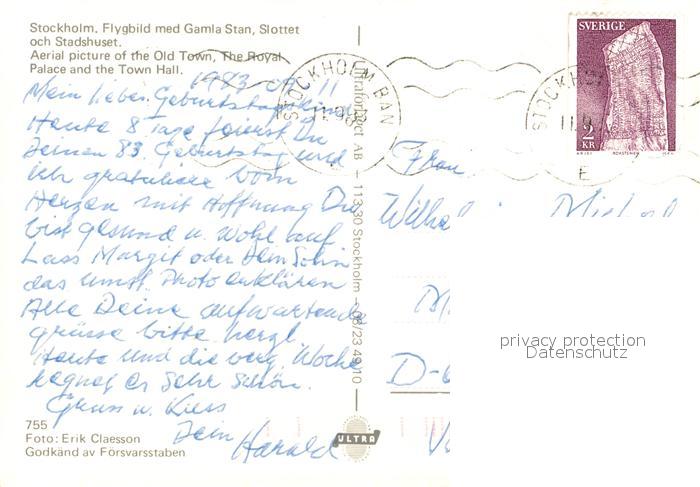 Stockholm. Flygbild med Gamla Stan, Slottet
och Stadshuset.
Aerial picture of the Old Town, The Royal
Palace and the Town Hall.
1983 09 11
Mein lieber Geburtstagskind
Heute 8 Tage feierst Du
Deinen 83. Geburtstag und
ich gratuliere vom
Herzen mit Hoffnung Du
bist gesund u. wohl auf
Lass Margit oder Dein Sohn
das umst. Photo erklären
Alle Deine aufwartende
grüsse bitte herzl
Heute und die verg. Woche
regnet er Sehr schön.
Gruss u. Kuss
Dein Harald
755
Foto: Erik Claesson
Godkänd av Försvarsstaben
Ultraförlaget AB - 113 30 Stockholm - 08/23 49 10
ULTRA
STOCKHOLM BAN
SVERIGE
2
KR
ROKSTENEN
Frau
D-
privacy protection
Datenschutz